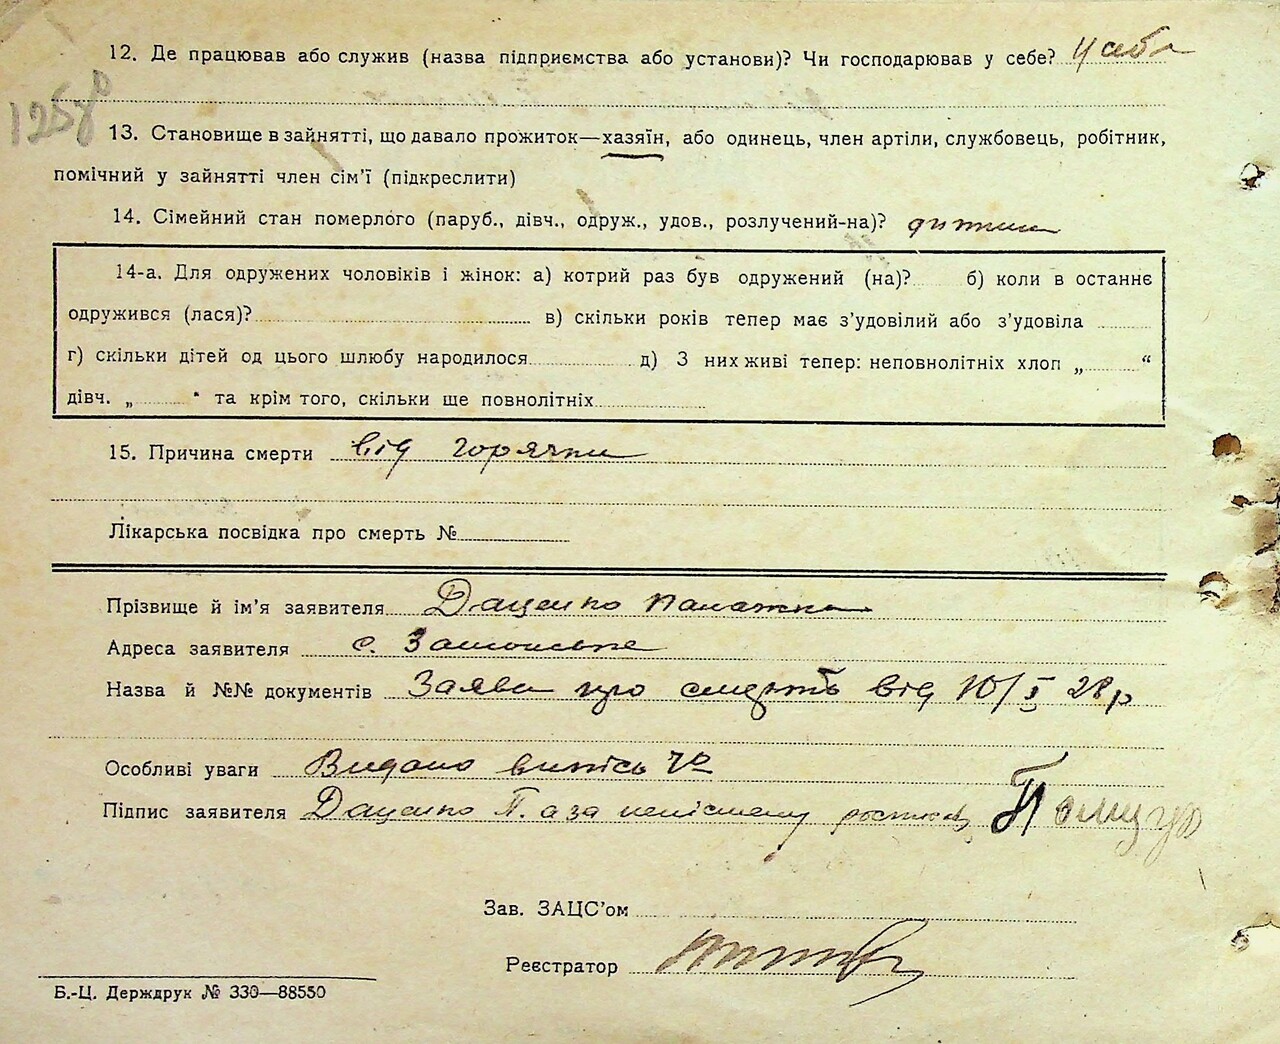 12. Де працював або служив (назва підприємства або установи)? Чи господарював у себе? у себе
13. Становище в зайнятті, що давало прожиток—хазяїн, або одинець, член артілі, службовець, робітник,
помічний у зайнятті член сім’ї (підкреслити)
14. Сімейний стан померлого (паруб., дівч., одруж., удов., розлучений-на)? дитина
14-а. Для одружених чоловіків і жінок: а) котрий раз був одружений (на)? б) коли в останнє
одружився (лася)? в) скільки років тепер має з’удовілий або з’удовіла
г) скільки дітей од цього шлюбу народилося д) З них живі тепер: неповнолітніх хлоп „ “
дівч. „ “ та крім того, скільки ще повнолітніх
15. Причина смерти від горячки
Лікарська посвідка про смерть №
Прізвище й ім’я заявителя Даценко Палажка
Адреса заявителя с.
Назва й №№ документів Заява про смерть від 10/X 28р
Особливі уваги Видано випись
Підпис заявителя Даценко П. а за неписьмену
Зав. ЗАЦС’ом
Реєстратор
Б.-Ц. Держдрук № 330—88550